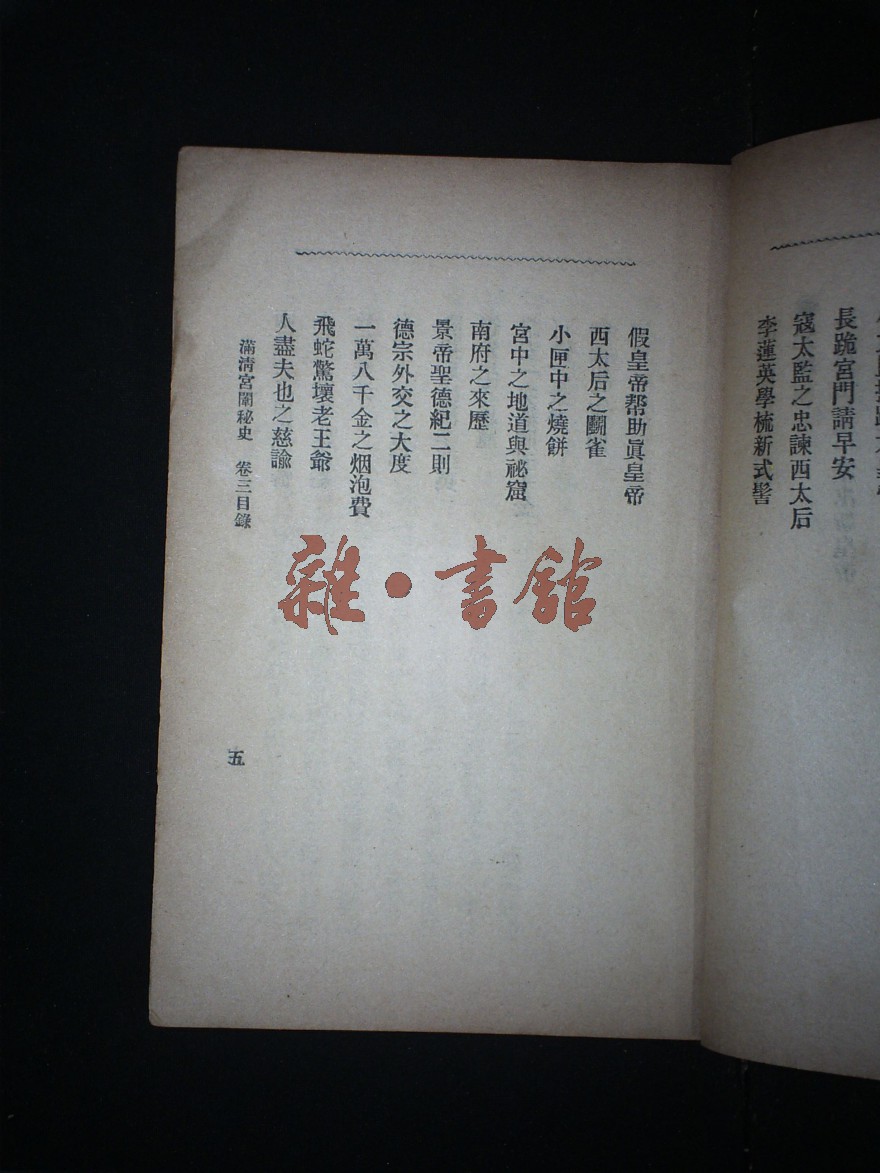 李蓮英學梳新式髻
寇太監之忠諫西太后
長跪宮門請早安
假皇帝帮助眞皇帝
西太后之鬭雀
小匣中之燒餅
宮中之地道與祕窟
南府之來歷
景帝聖德紀二則
德宗外交之大度
一萬八千金之烟泡費
飛蛇驚壞老王爺
人盡夫也之慈諭
滿淸宮闈秘史 卷三目錄
五
雜·書館